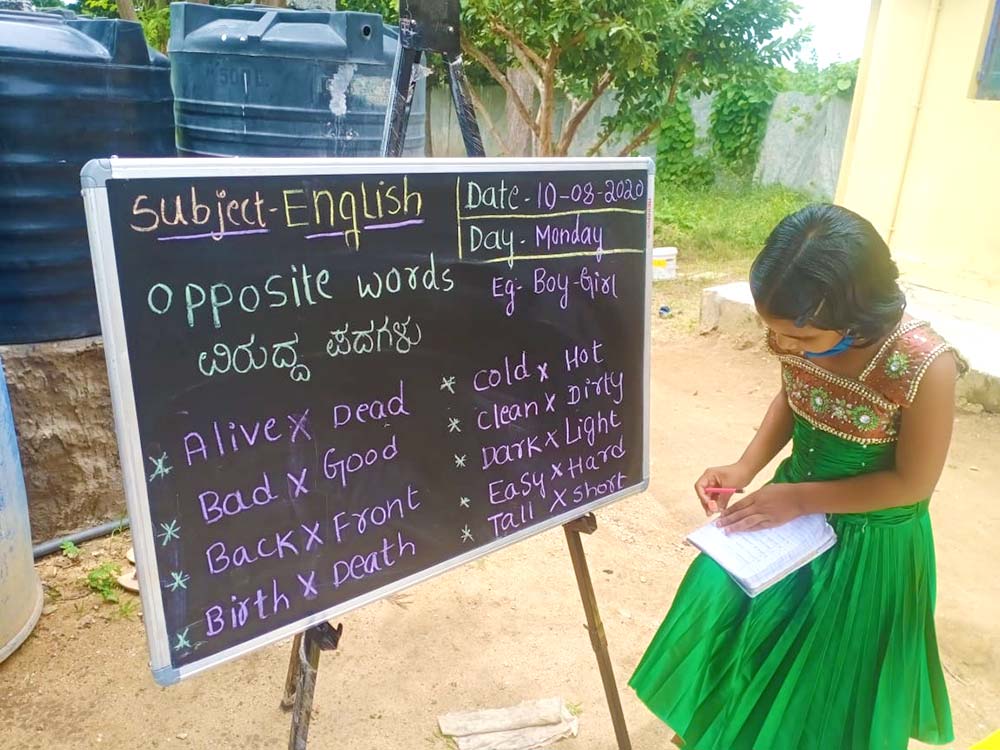 Subject - English
Date - 10-08-2020
Day - Monday
Opposite words
Eg - Boy - Girl
ವಿರುದ್ಧ ಪದಗಳು
* Alive X Dead
* Bad X Good
* Back X Front
* Birth X Death
* Cold X Hot
* Clean X Dirty
* Dark X Light
* Easy X Hard
* Tall X Short